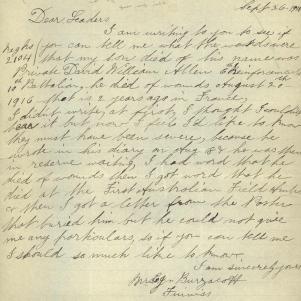 Sept 26. 1918
Dear Leaders
I am writing to you to see if
you can tell me what the wounds were
that my son died of his name was
Private David William Allen Reinforcements
10th Battalion, he died of wounds August 20th
1916 that is 2 years ago in France,
I didn't write at first, I thought I couldn't
bear it but now I feel I'd like to know
they must have been severe, because he
wrote in his diary on Aug 18 he was then
in reserve waiting, I had word that he
died of wounds then I got word that he
died at the First Australian Field Amb
& then I got a letter from the
that buried him but he could not give
me any particulars, so if you can tell me
I should so much like to know.
I am sincerely yours
Mrs